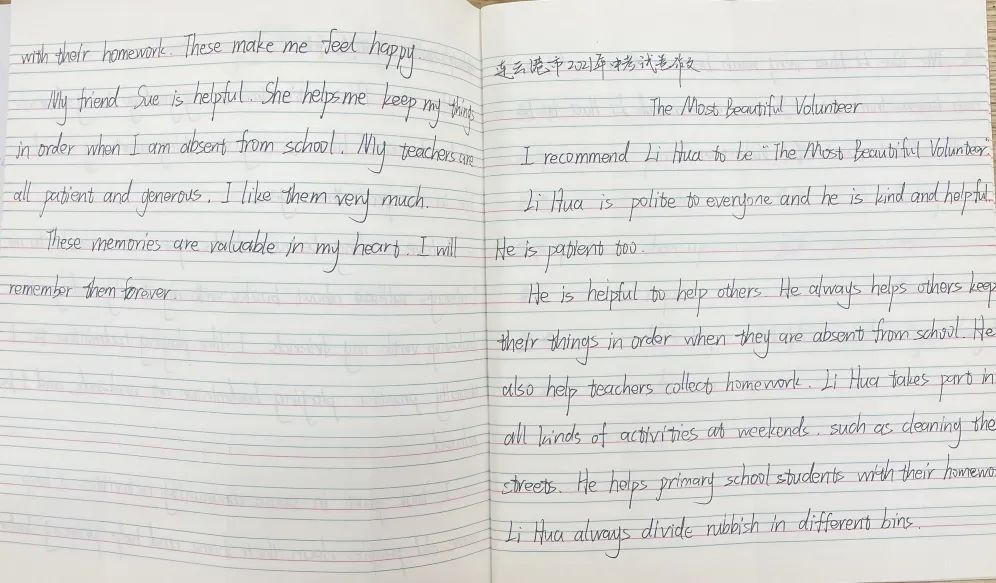 with their homework. These make me feel happy.
My friend Sue is helpful. She helps me keep my things
in order when I am absent from school. My teachers are
all patient and generous. I like them very much.
These memories are valuable in my heart. I will
remember them forever.
连云港市2021年中考试卷作文
The Most Beautiful Volunteer
I recommend Li Hua to be "The Most Beautiful Volunteer."
Li Hua is polite to everyone and he is kind and helpful.
He is patient too.
He is helpful to help others. He always helps others keep
their things in order when they are absent from school. He
also help teachers collect homework. Li Hua takes part in
all kinds of activities at weekends, such as cleaning the
streets. He helps primary school students with their homewo
Li Hua always divide rubbish in different bins.